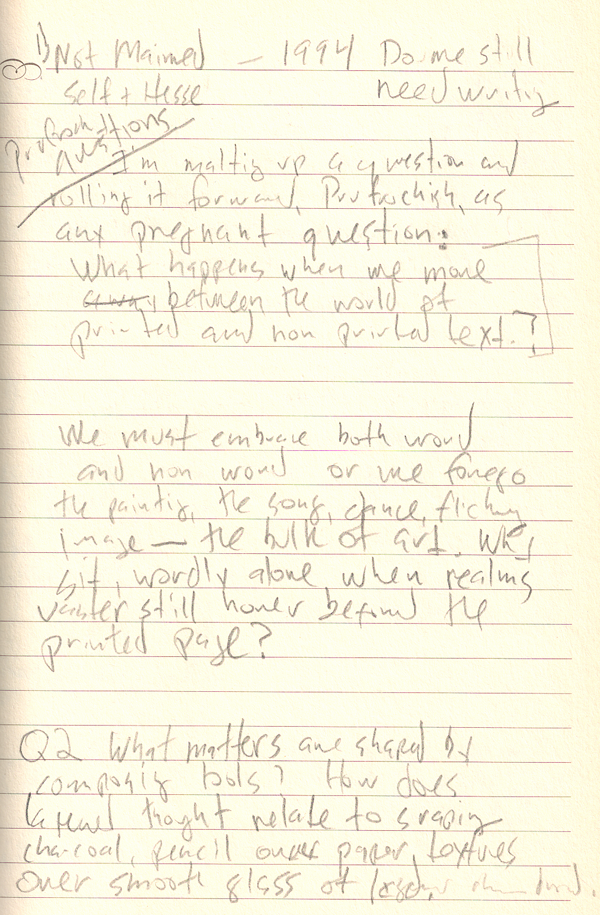 1) Not Maimed — 1994 Do we still
Self + Hesse need writing
questions
I'm malting up a question and
rolling it forward, as
any pregnant question:
What happens when we move
between the world of
printed and non printed text.?
We must embrace both word
and non word or we forego
the painting, the song, dance, flickng
image — the bulk of art. Why
sit, wordly alone, when realms
vaster still hover behind the
printed page?
Q2 What matters are shaped by
composing tools? How does
thought relate to scraping
charcoal, pencil over paper, textures
over smooth glass of